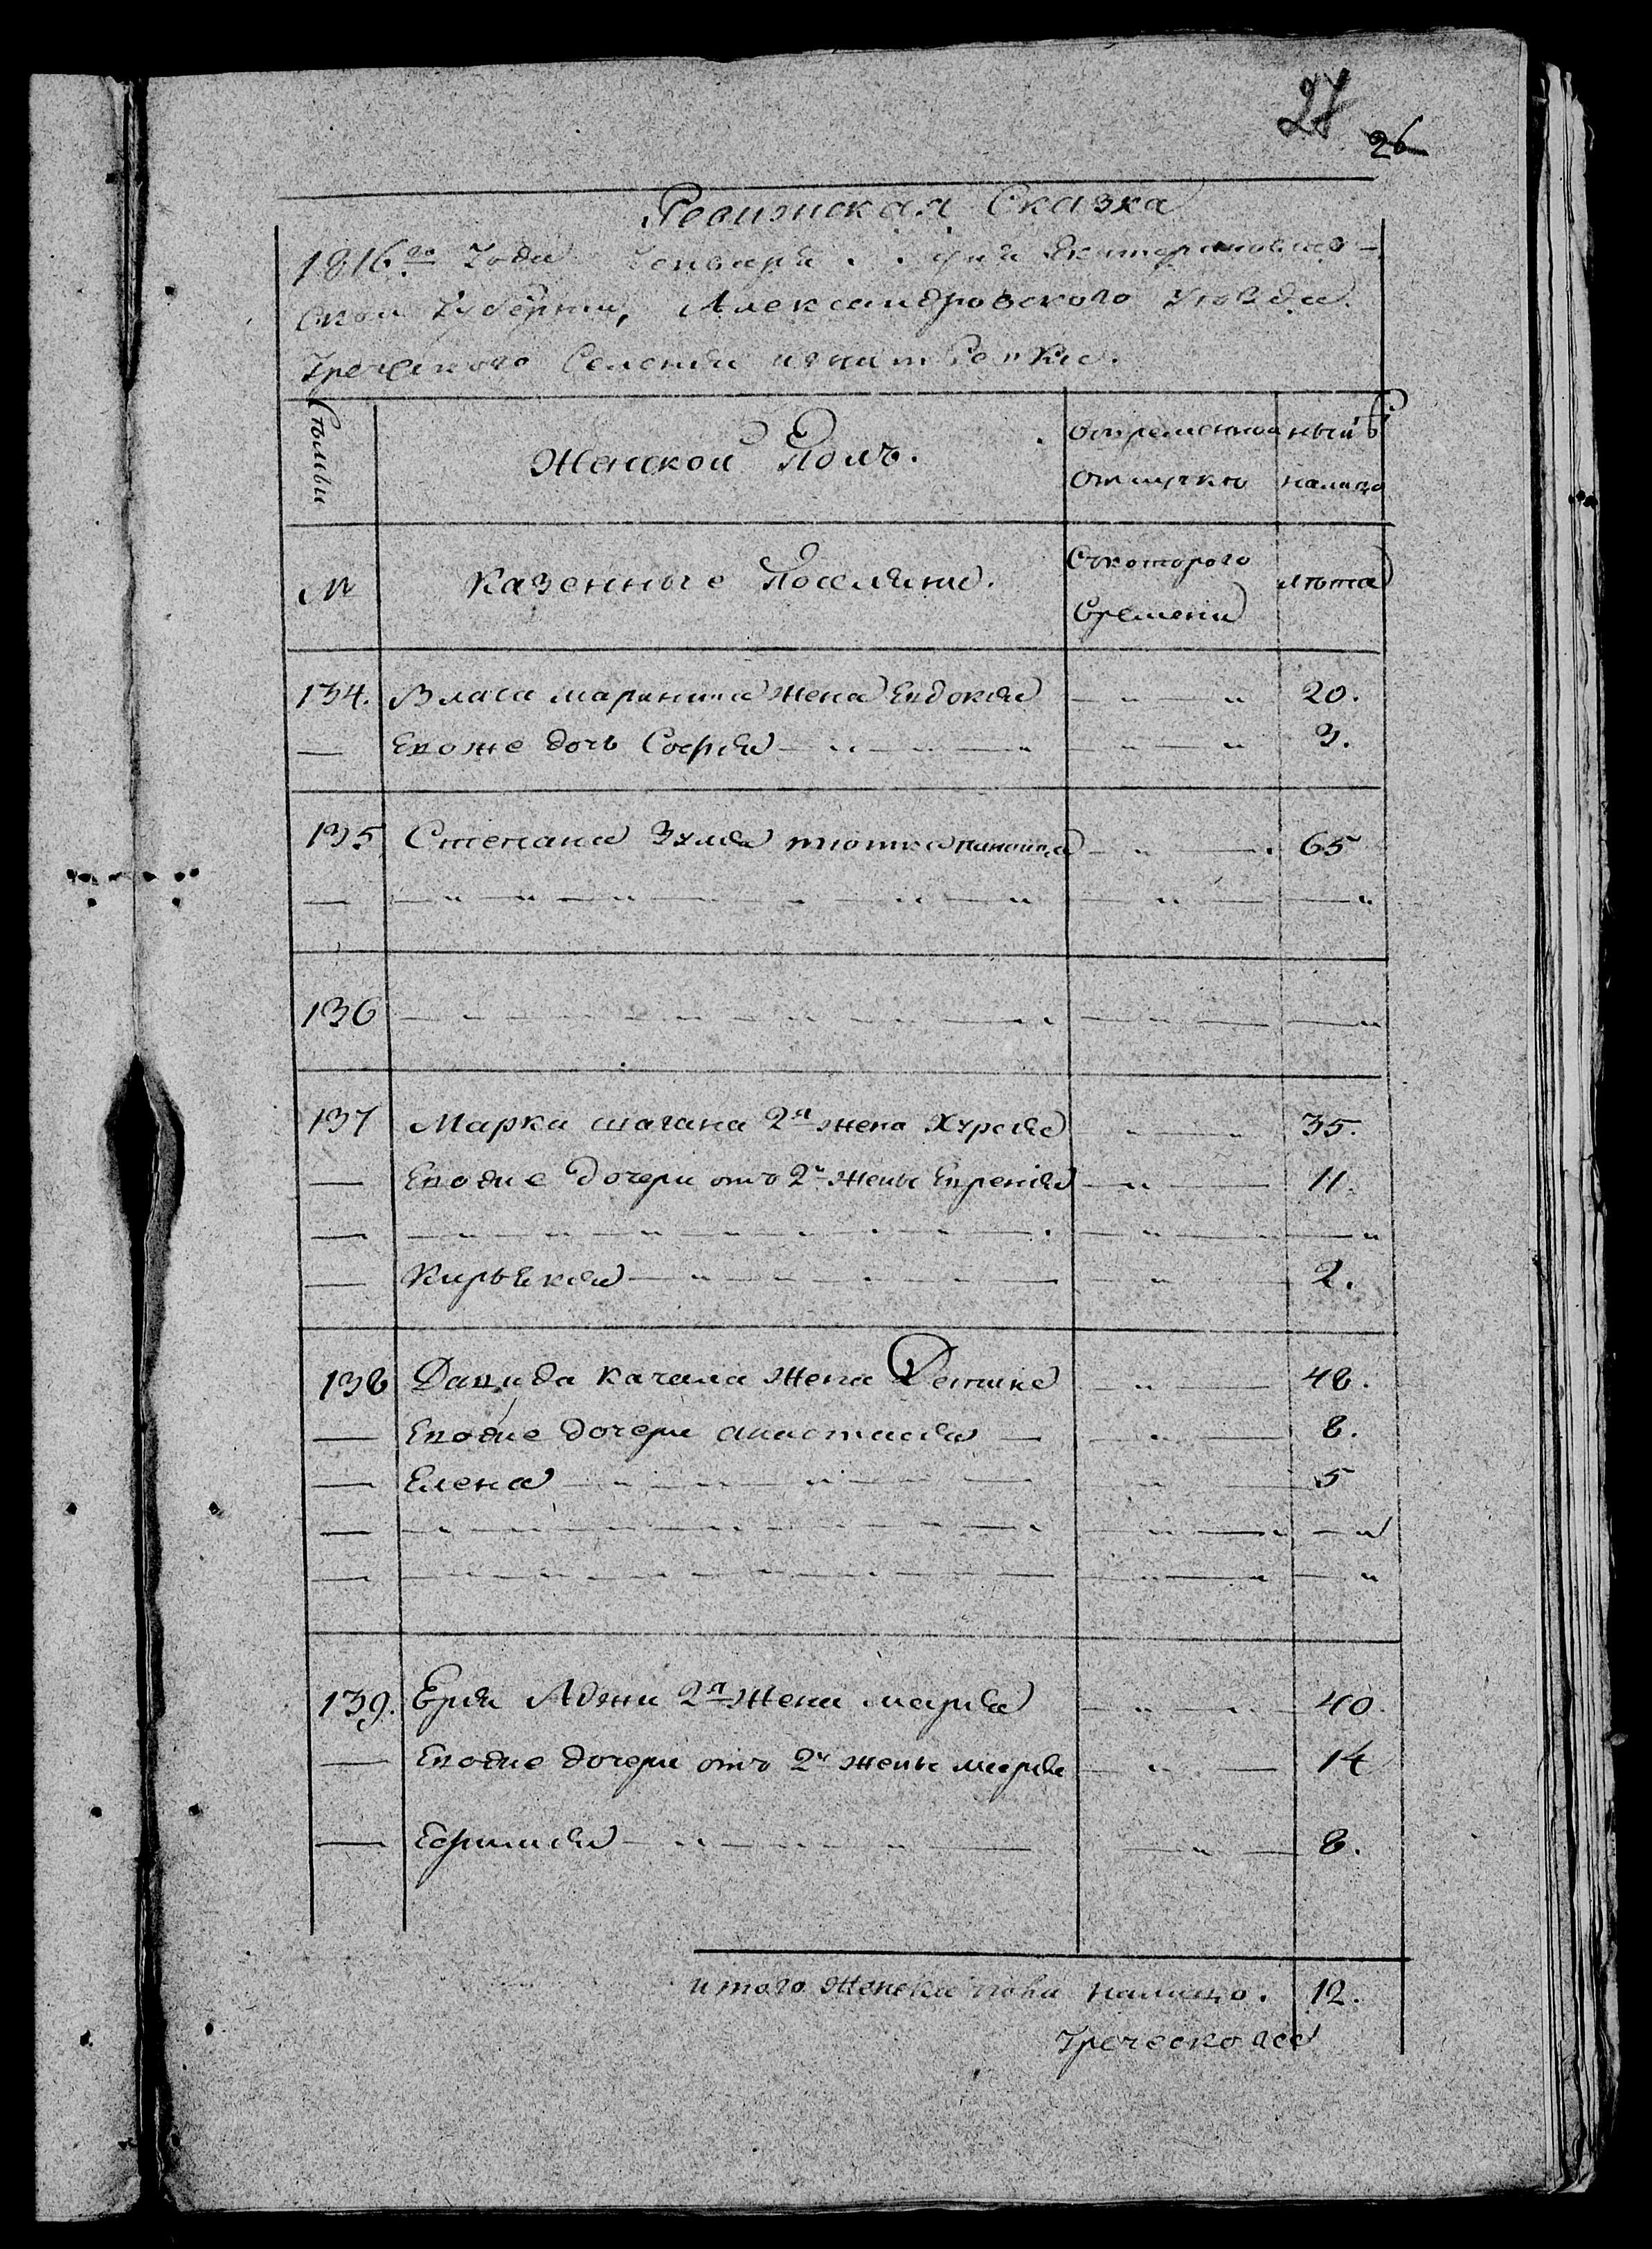 27
26
Ревижская Сказка
1816го Года Генваря . . дня Екатеринослав-
ской Губернии, Александровского уезда.
Греческого Селения
Семьи
Женской Полъ.
Вовременной отлучке
ныне налицо
№
Казенные Поселяне.
Скоторого времени
лета
134. Власа жена Евдокия 20.
Евоже дочь София 3.
135 Степана тютка 65
136
137 Марка шагана 2я жена 35.
Евоже дочери отъ 2й жены 11.
Кирьякия 2.
138 Давида качала жена 48.
Евоже дочери анастасия 8.
Елена 5
139. Аджи 2я жена мария 40.
Евоже дочери отъ 2й жены мария 14
Ефимия 8.
итого женска пола налицо. 12.
Греческое